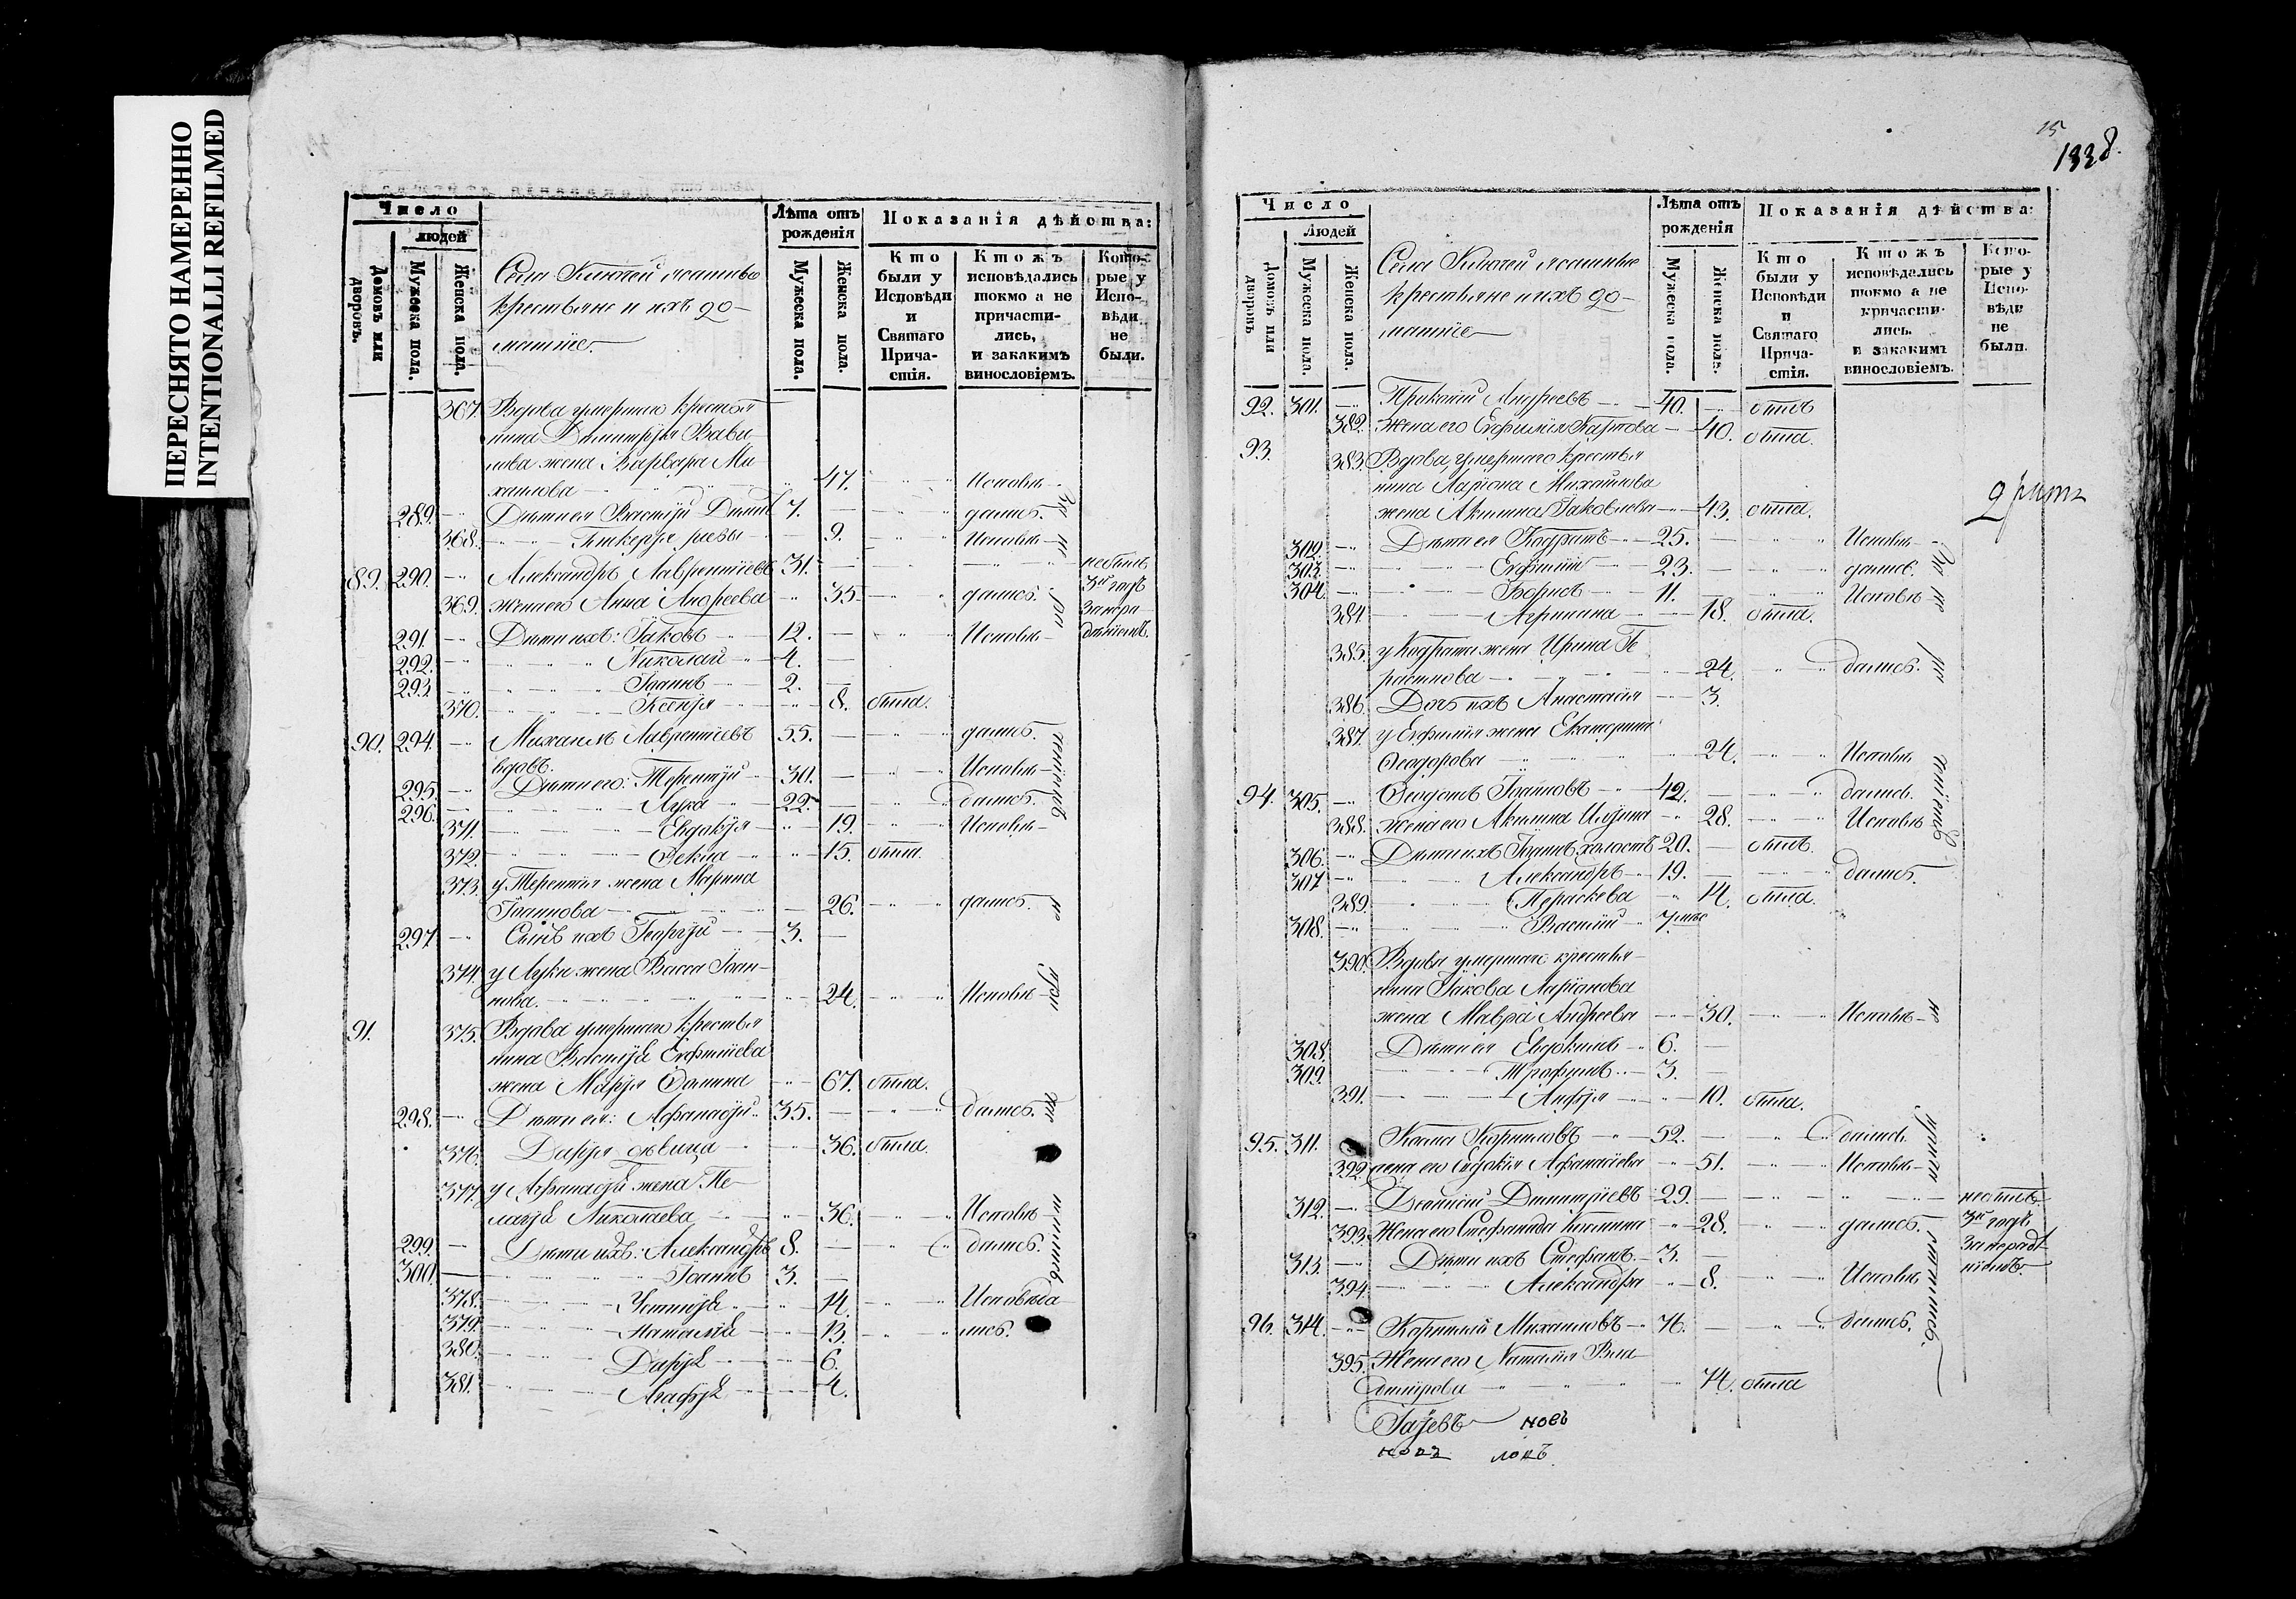 ПЕРЕСНЯТО НАМЕРЕННО
INTENTIONALLI REFILMED
Число
людей
Домовъ или дворовъ.
Мужеска пола.
Женска пола.
Лѣта отъ рожденія
Мужеска пола.
Женска пола.
Показанія дѣйства:
Кто были у Исповѣди и Святаго Прича-стія.
Ктожъ исповѣдались токмо а не причасти-лись, и закакимъ винословіемъ.
Кото-рые у Испо-вѣди не были.
Села Ключей ясашные
крестьяне и ихъ до-
машніе.
367. Вдова умершаго крестья
нина Димитрія Вави
лова жена Варвара Ми
хаилова 47. Исповѣ-
289. Дѣти ея Василій 7. дались.
368. Гликерія 9. Исповѣ-
89. 290. Александръ Лаврентіевъ 31. небылъ
369. жена его Анна Андреева 35 дались. 3й годъ
291. Дѣти ихъ: Іаковъ 12. Исповѣ-
292. Николай 4.
293 Іоаннъ 2.
370. Ксенія 8. была.
90. 294. Михаилъ Лаврентіевъ 55. дались.
вдовъ.
295. Дѣти его: Терентій 30. Исповѣ-
296. Лука 22. дались.
371. Евдокія 19. Исповѣ-
372. Ѳекла 15. была
373. у Терентія жена Марина
Іоаннова 26. дались.
297 Сынъ ихъ Георгій 3.
374. у Луки жена Васса Іоан-
нова. 24. Исповѣ-
91. 375. Вдова умершаго крестья
нина Василія Евфиміева
жена Марія Ѳомина 67. была.
298. Дѣти ея: Аѳанасій 35. дались.
376. Дарія дѣвица 36. была.
377. у Аѳанасія жена Пе-
лагія Николаева 36. Исповѣ
299. Дѣти ихъ: Александръ 8. дались.
300. Іоаннъ 3.
378. Устинія 14. Исповѣда
379. Наталія 13. лись.
380. Дарія 6.
381. Агафія 4.
15
1338.
Число
Людей
Домовъ или дворовъ
Мужеска пола.
Женска пола.
Лѣта отъ рожденія
Мужеска пола.
Женска пола.
Показанія дѣйства:
Кто были у Исповѣди и Святаго Прича-стія.
Ктожъ исповѣдались токмо а не причасти-лись. и закакимъ винословіемъ.
Кото-рые у Испо-вѣди не были.
Села Ключей ясашные
крестьяне и ихъ до-
машніе
92. 301. Прокопій Андреевъ 40. былъ
382. жена его Евфимія Карпова 40. была.
93. 383. Вдова умершаго крестья
нина Ларіона Михайлова
жена Акилина Іаковлева 43. была.
302. Дѣти ея Кодратъ 25. Исповѣ-
303. Евфимій 23. дались.
304. Борисъ 11. Исповѣ
384 Агрипина 18. была.
385. у Кодрата жена Ирина Ге
расимова 24. дались.
386. Дочь ихъ Анастасія 3.
387. у Евфимія жена Екатерина
Ѳеодорова 24. Исповѣ
94. 305. Ѳеодотъ Іоанновъ 42. дались.
388. жена его Акилина Ильина 28. Исповѣ
306. Дѣти ихъ Іоаннъ холостъ 20. былъ.
307 Александръ 19. дались.
389. Параскева 14. была.
308. Василій 7 мѣс
390. Вдова умершаго крестья-
нина Іакова Ларіонова
жена Мавра Андреева 30. Исповѣ-
308. Дѣти ея Евдокимъ 6.
309. Трофимъ 3.
391. Анфія 10. была.
95. 311. Козма Корниловъ 52. дались.
392. жена его Евдокія Аѳанасіева 51. Исповѣ-
312. Діонисій Димитріевъ 29. небылъ
393. Жена его Стефанида 28. дались. 3й годъ
313. Дѣти ихъ Стефанъ 3.
394. Александра 8. Исповѣ
96. 314. Корнилій Михаиловъ 76. дались.
395. Жена его Наталія Вла-
димірова 74. была